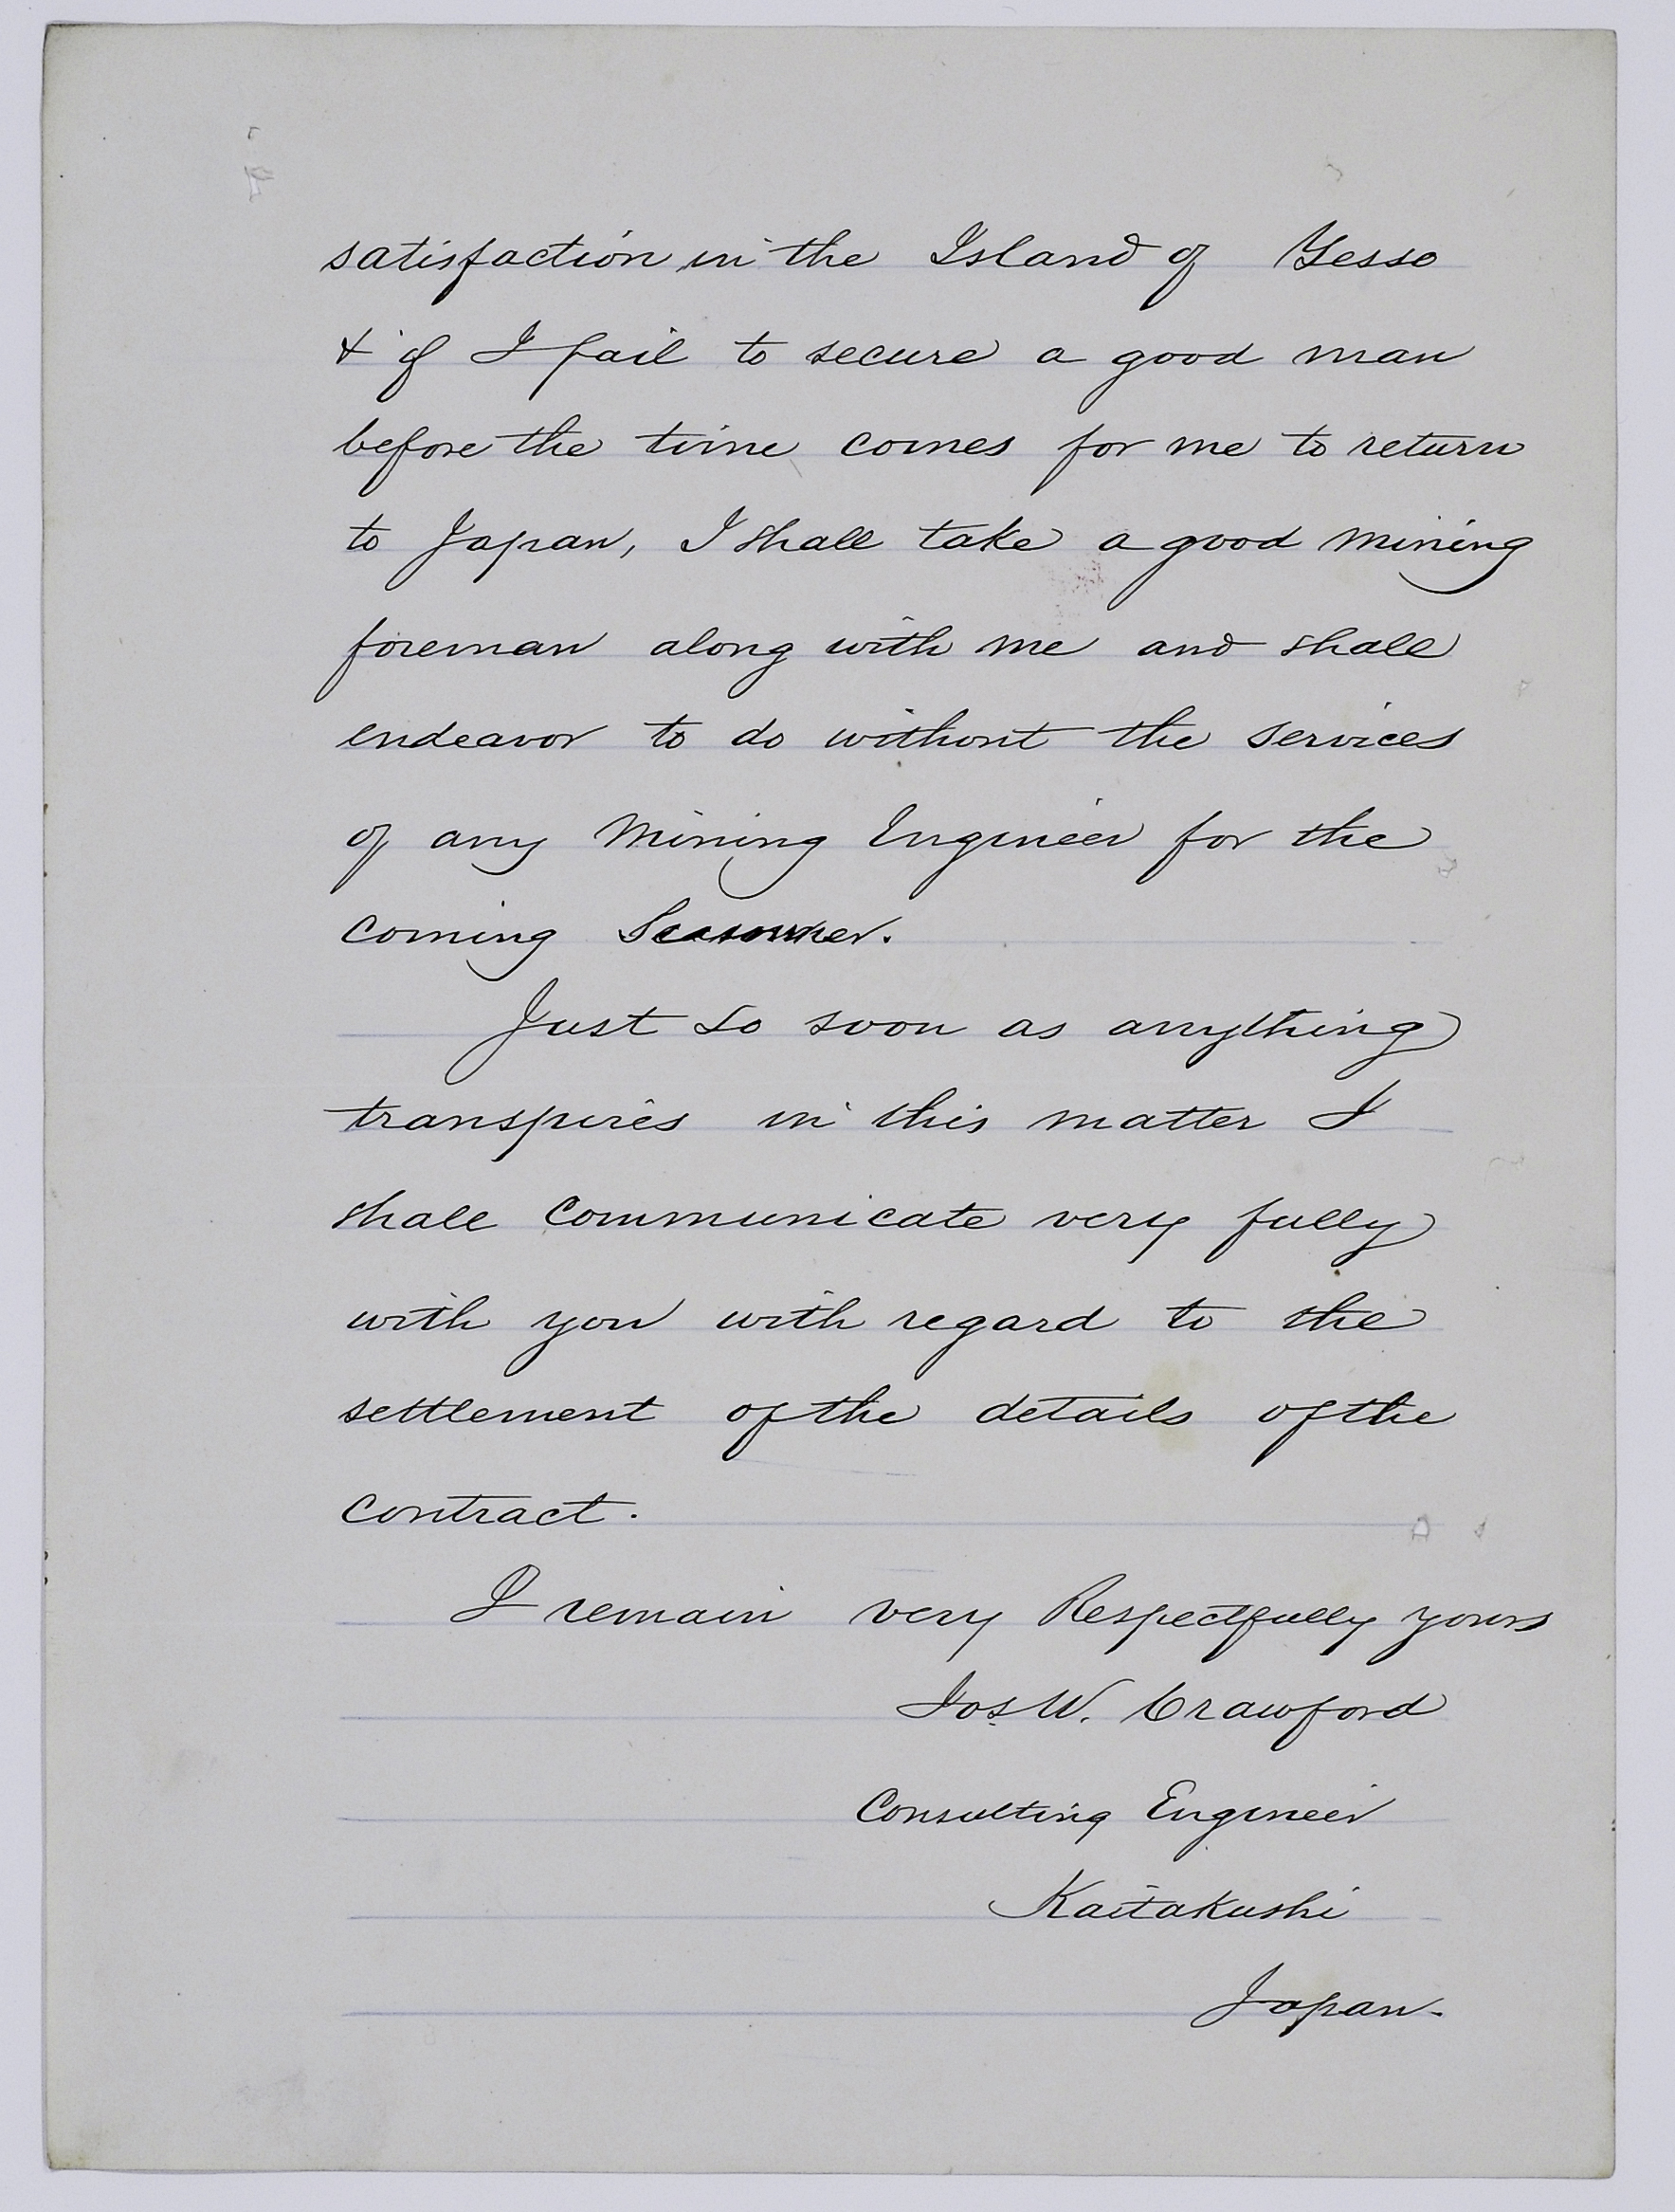 satisfaction in the Island of Yesso
& if I fail to secure a good man
before the time comes for me to return
to Japan, I shall take a good mining
foreman along with me and shall
endeavor to do without the services
of any Mining Engineer for the
coming Summer.
Just so soon as anything
transpires in this matter I
shall communicate very fully
with you with regard to the
settlement of the details of the
contract.
I remain very Respectfully yours
Jos W. Crawford
Consulting Engineer
Kaitakushi
Japan.